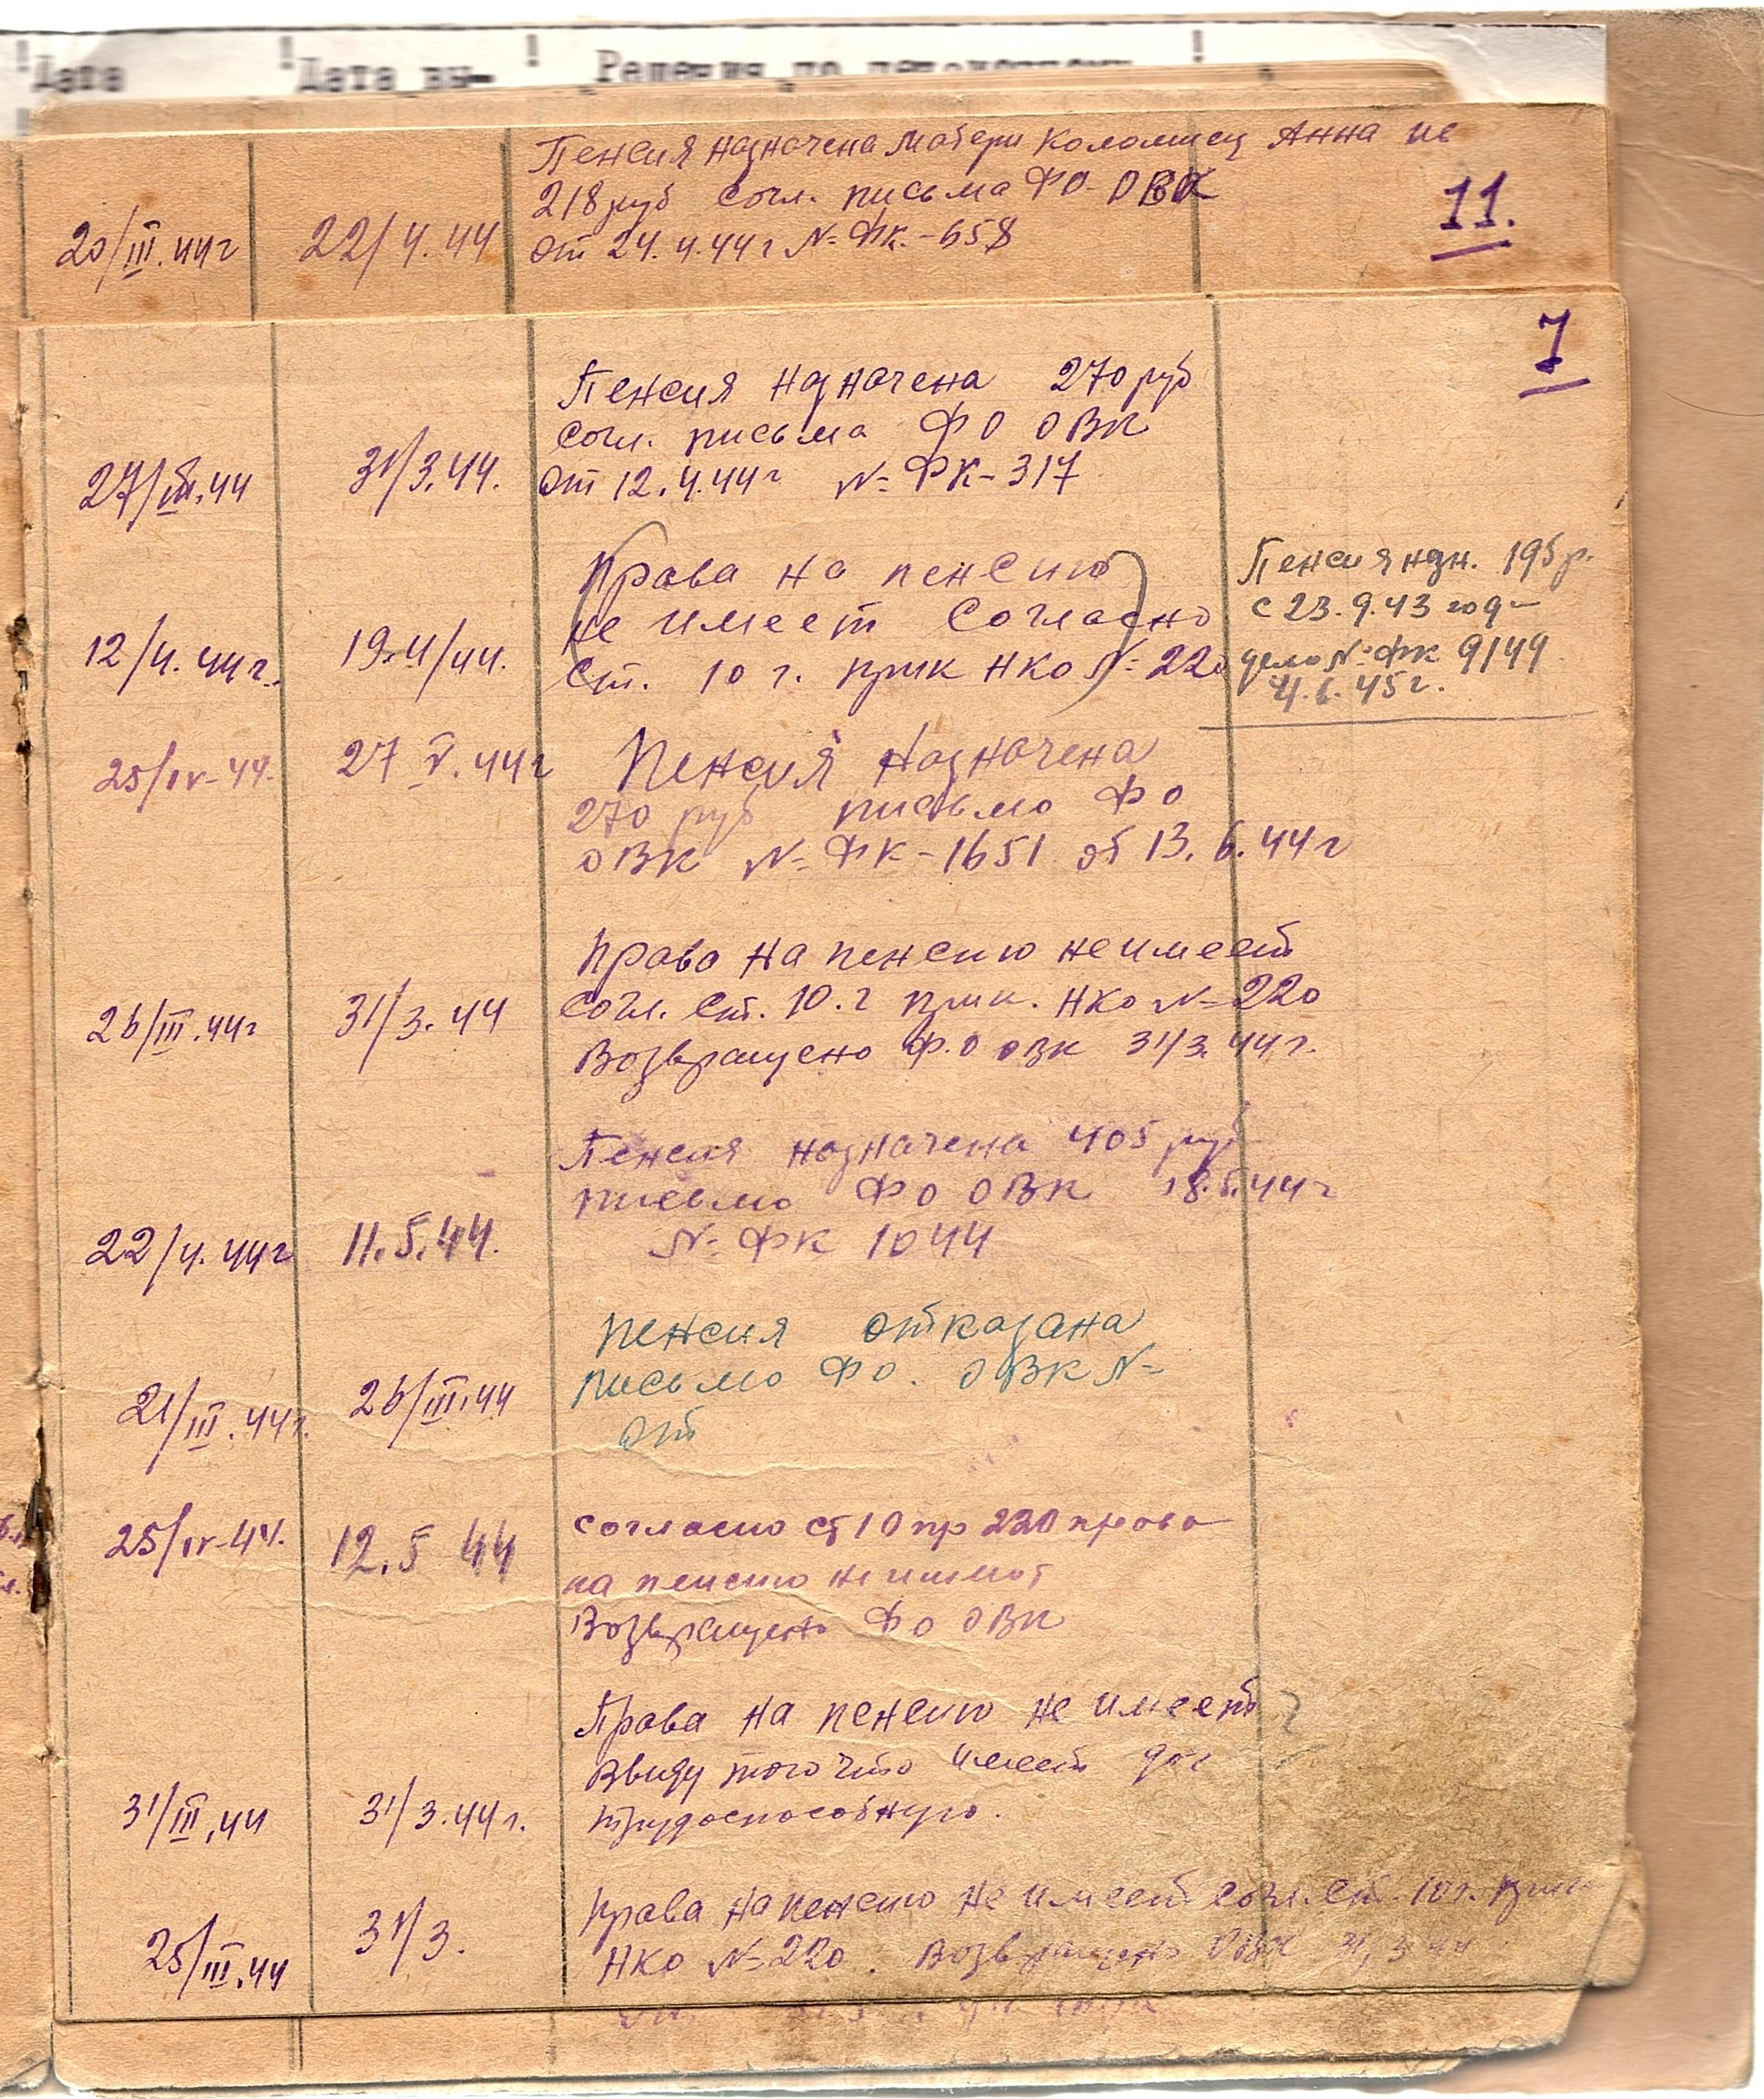 Дата
Дата вы-
Решения по
Пенсия назначена матери Коломиец Анна
218 руб согл. письма ФО ОВК
20/III.44г
22/4.44
от 24.4.44г № ФК-658
11.
7
Пенсия назначена 270 руб
согл. письма ФО ОВК
27/III.44
31/3.44.
от 12.4.44г № ФК-317
Права на пенсию
не имеет согласно
12/4.44г.
19.4/44.
ст. 10 г. прик НКО № 220
Пенсия нзн. 195 р.
с 23.9.43 года
дело № ФК 9144
4.6.45г.
25/IV-44.
27 V.44г
Пенсия назначена
270 руб письмо ФО
ОВК № ФК-1651 от 13.6.44г
Право на пенсию не имеет
26/III.44г
31/3.44
согл. ст. 10.г прик. НКО № 220
Возвращено Ф.О ОВК 31/3.44г.
Пенсия назначена 405 руб
письмо ФО ОВК 18.5.44г
22/4.44г
11.5.44.
№ ФК 1044
Пенсия отказана
письмо ФО. ОВК №
21/III.44г.
26/III.44
от
25/IV-44.
12.5 44
согласно ст 10 пр 220 право
на пенсию не имеет
Возвращено ФО ОВК
Права на пенсию не имеет
ввиду того что имеет
31/III.44
31/3.44г.
трудоспособную.
Права на пенсию не имеет согл. ст. 10 г. прик
25/III.44
31/3.
НКО № 220. Возвращено ОВК 31,3 44